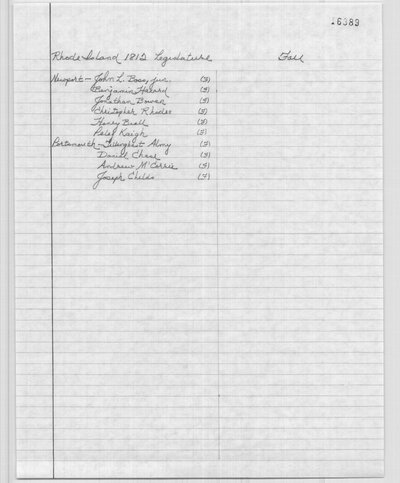 16383
Rhode Island 1812 Legislature Fall
Newport - John L. Boss, Jun. (F)
Benjamin Hazard (F)
Jonathan Bowen (F)
Christopher Rhodes (F)
Henry Buell (F)
(F)
Portsmouth - Almy (F)
Daniel Chase (F)
Andrew M'Corrie (F)
Joseph Childs (F)